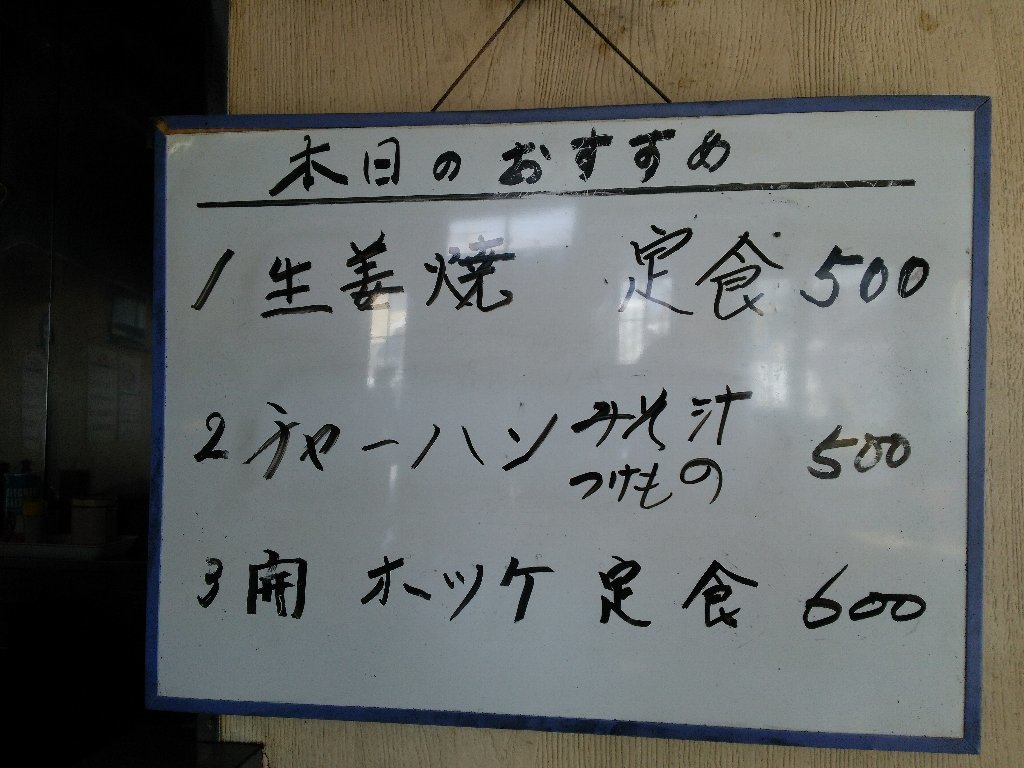 本日のおすすめ
1 生姜焼 定食 500
2 チャーハン みそ汁 つけもの 500
3 開 ホッケ 定食 600